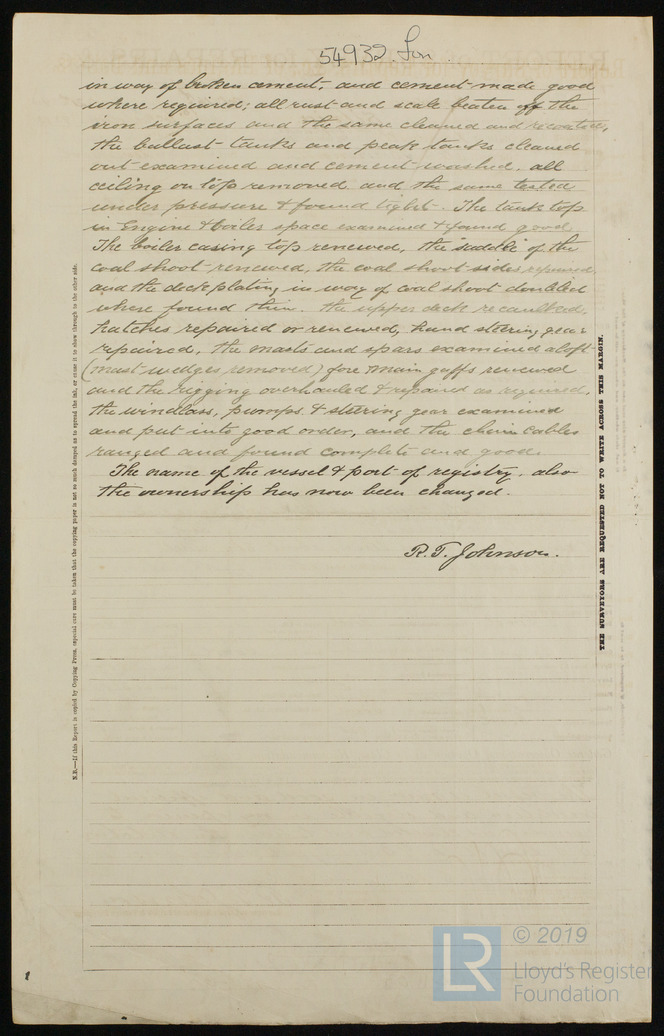 54932 Lon
in way of broken cement, and cement made good
where required; all rust and scale beaten off the
iron surfaces and the same cleaned and recoated,
the ballast tanks and peak tanks cleaned
out examined and cement washed. all
ceiling on top removed and the same tested
under pressure & found tight. The tank top
in Engine & boiler space examined & found good
The boiler casing top renewed, the "saddle" of the
coal shoot renewed, the coal shoot sides repaired
and the deck plating in way of coal shoot doubled
where found thin. the upper deck recaulked,
hatches repaired or renewed, hand steering gear
repaired, the masts and spars examined aloft
(mast wedges removed) fore main gaffs renewed
and the rigging overhauled & repaired as required,
the windlass, pumps & steering gear examined
and put into good order, and the chain cables
ranged and found complete and good.
The name of the vessel & port of registry, also
the ownership has now been changed.
R. T. Johnson.
N.B.—If this Report is copied by Copying Press, especial care must be taken that the copying paper is not so much damped as to spread the ink, or cause it to show through to the other side.
THE SURVEYORS ARE REQUESTED NOT TO WRITE ACROSS THIS MARGIN.
LR
© 2019
Lloyd's Register
Foundation